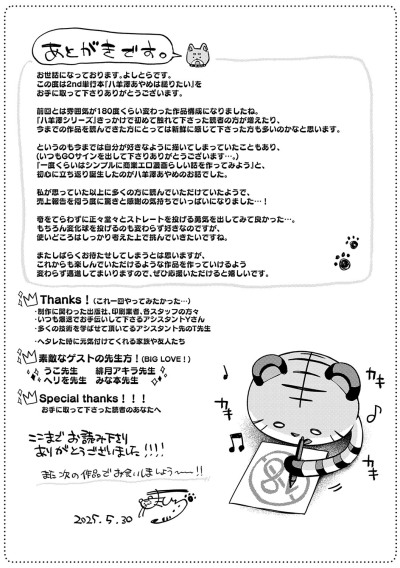 あとがきです。
お世話になっております。よしとらです。
この度は2nd単行本『八羊澤あやめは揺りたい』を
お手に取って下さりありがとうございます。
前回とは雰囲気が180度くらい変わった作品構成になりましたね。
『八羊澤シリーズ』きっかけで初めて触れて下さった読者の方が増えたり、
今までの作品を読んできた方にとっては新鮮に感じて下さった方も多いのかなと思います。
というのも今までは自分が好きなように描いてしまっていたこともあり、
(いつもGOサインを出して下さりありがとうございます…。)
『一度くらいはシンプルに商業エロ漫画らしい話を作ってみよう』と、
初心に立ち返り誕生したのが八羊澤あやめのお話でした。
私が思っていた以上に多くの方に読んでいただけていたようで、
売上報告を伺う度に驚きと感謝の気持ちでいっぱいになりました…!
奇をてらわずに正々堂々とストレートを投げる勇気を出してみて良かった…。
もちろん変化球を投げるのも変わらず好きなのですが、
使いどころはしっかり考えた上で挑んでいきたいですね。
またしばらくお待たせしてしまうとは思いますが、
これからも楽しんでいただけるような作品を作っていけるよう
変わらず邁進してまいりますので、ぜひ応援いただけると嬉しいです。
Thanks!(これ一回やってみたかった…)
・制作に関わった出版社、印刷業者、各スタッフの方々
・いつも爆速でお手伝いして下さるアシスタントYさん
・多くの技術を学ばせて頂いてるアシスタント先のT先生
・ヘタレた時に元気付けてくれる家族や友人たち
素敵なゲストの先生方!(BIG LOVE!)
うこ先生 緋月アキラ先生
ヘリを先生 みな本先生
Special thanks!!!
お手に取って下さった読者のあなたへ
ここまでお読み下さり
ありがとうございました!!!!
また次の作品でお会いしましょう〜!!
2025.5.30
カキ
カキ
カキ